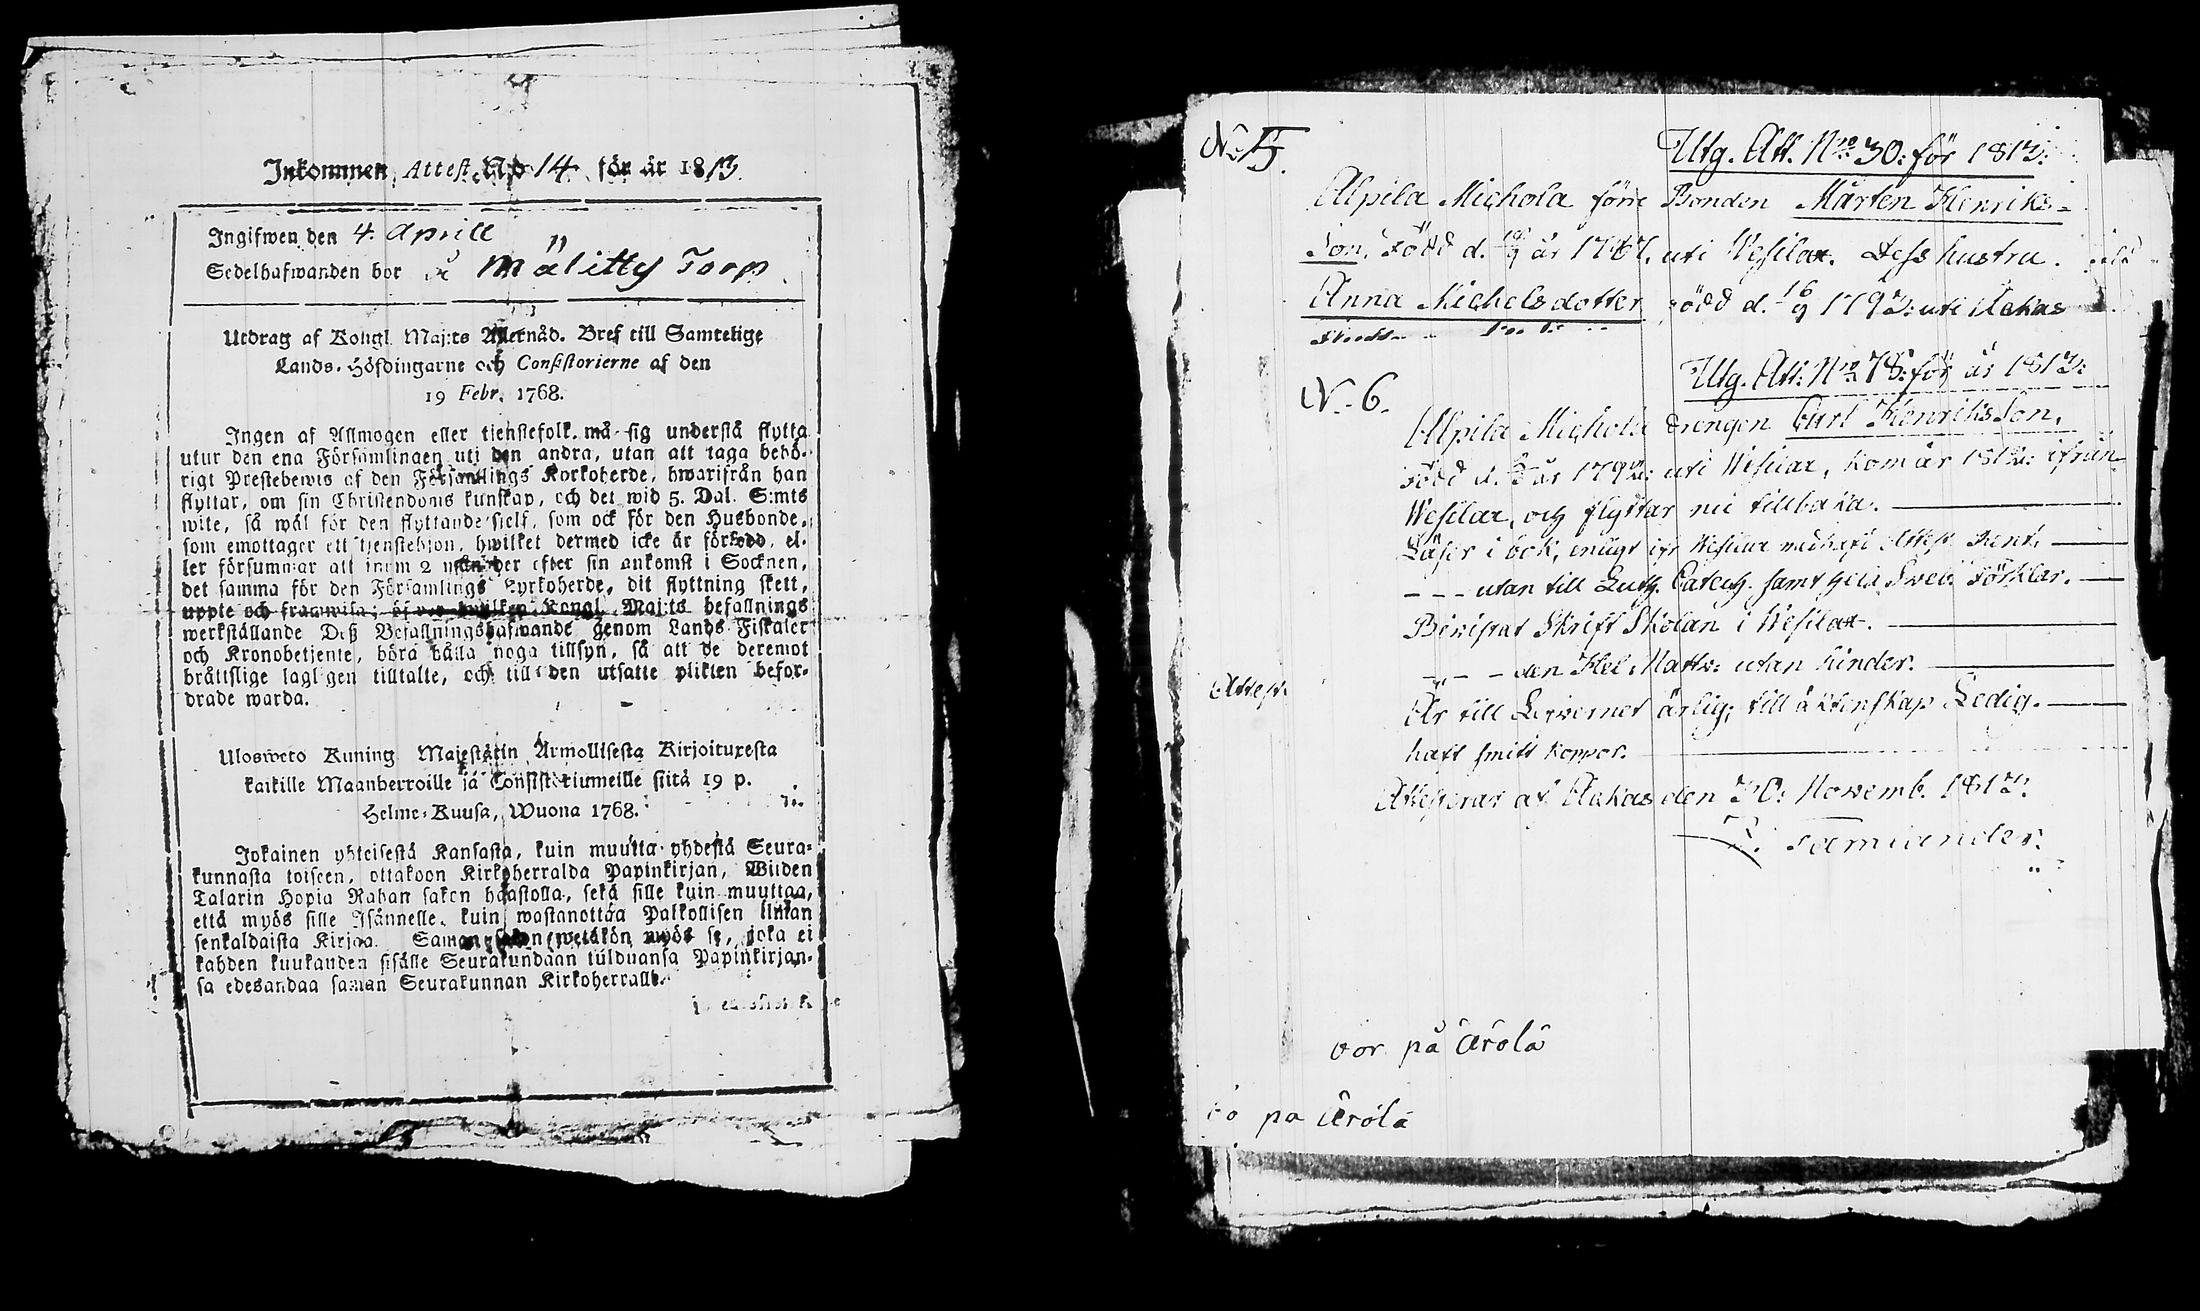 Inkommen Attest N:o 14 för år 1813
Ingifwen den 4. Aprill
Sedelhafwanden bor å Mälitty Torp
Utdrag af Kongl. Maj:ts Allernåd. Bref till Samtelige
Lands-Höfdingarne och Consistorierne af den
19 Febr. 1768.
Ingen af Allmogen eller tienstefolk må sig understå flytta
utur den ena Församlingen uti den andra, utan att taga behö-
rigt Prestebewis af den Församlings Kyrkoherde, hwarifrån han
flyttar, om sin Christendoms kunskap, och det wid 5. Dal. S:mts
wite, så wäl för den flyttande sielf, som ock för den Husbonde,
som emottager ett tjenstehjon, hwilket dermed icke är försedd, el-
ler försummar att inom 2 månader efter sin ankomst i Socknen,
det samma för den Församlings Kyrkoherde, dit flyttning skett,
uppte och framwisa; öfwer hwilken Kongl. Maj:ts befallnings
werkställande Deß Befallningshafwande genom Lands Fiskaler
och Kronobetjente, böra hålla noga tillsyn, så att de deremot
bråttslige lagligen tilltalte, och till den utsatte plikten befor-
drade warda.
Ulosweto Kuning Majestätin Armollisesta Kirjoituxesta
kaikille Maanherroille ja Consistoriumeille siitä 19 p.
Helme-Kuusa, Wuona 1768.
Jokainen yhteisestä Kansasta, kuin muutta yhdestä Seura-
kunnasta toiseen, ottakoon Kirkoherralda Papinkirjan, Wiiden
Talarin Hopia Rahan sakon haastolla, sekä sille kuin muuttaa,
että myös sille Isännelle, kuin wastanottaa Palkollisen ilman
senkaldaista Kirjaa. Saman sakon wetäkön myös se, joka ei
kahden kuukauden sisälle Seurakundaan tulduansa Papinkirjan-
sa edesandaa saman Seurakunnan Kirkoherralle.
N:o 5.
Utg. Att. N:o 30: för 1812:
Alpila Michola förre Bonden Mårten Henriks-
Son, Född d. år 1767. uti Wesilax. Dess hustru
Anna Michelsdotter född d. 16/9 1792: uti Ackas
N. 6.
Utg. Att: N:o 78: för år 1812:
Alpila Michola drengen Carl HenriksSon,
Född d. år 1792: uti Wesilax, kom år 1812: ifrån
Wesilax, och flyttar nu tillbaka.
Läser i bok, enligt ifr Wesilax medhaft Attest
utan till Luth. Catech. samt hela Sweb. Förklar.
Bewistat Skrift Skolan i Wesilax.
den Hel. Nattv: utan hinder.
Attest.
Är till Lefwernet ärlig; till äktenskap Ledig.
haft smitt koppor.
Attesterar af Ackas den 30: Novemb. 1812:
bor på Arola
bo på Arola